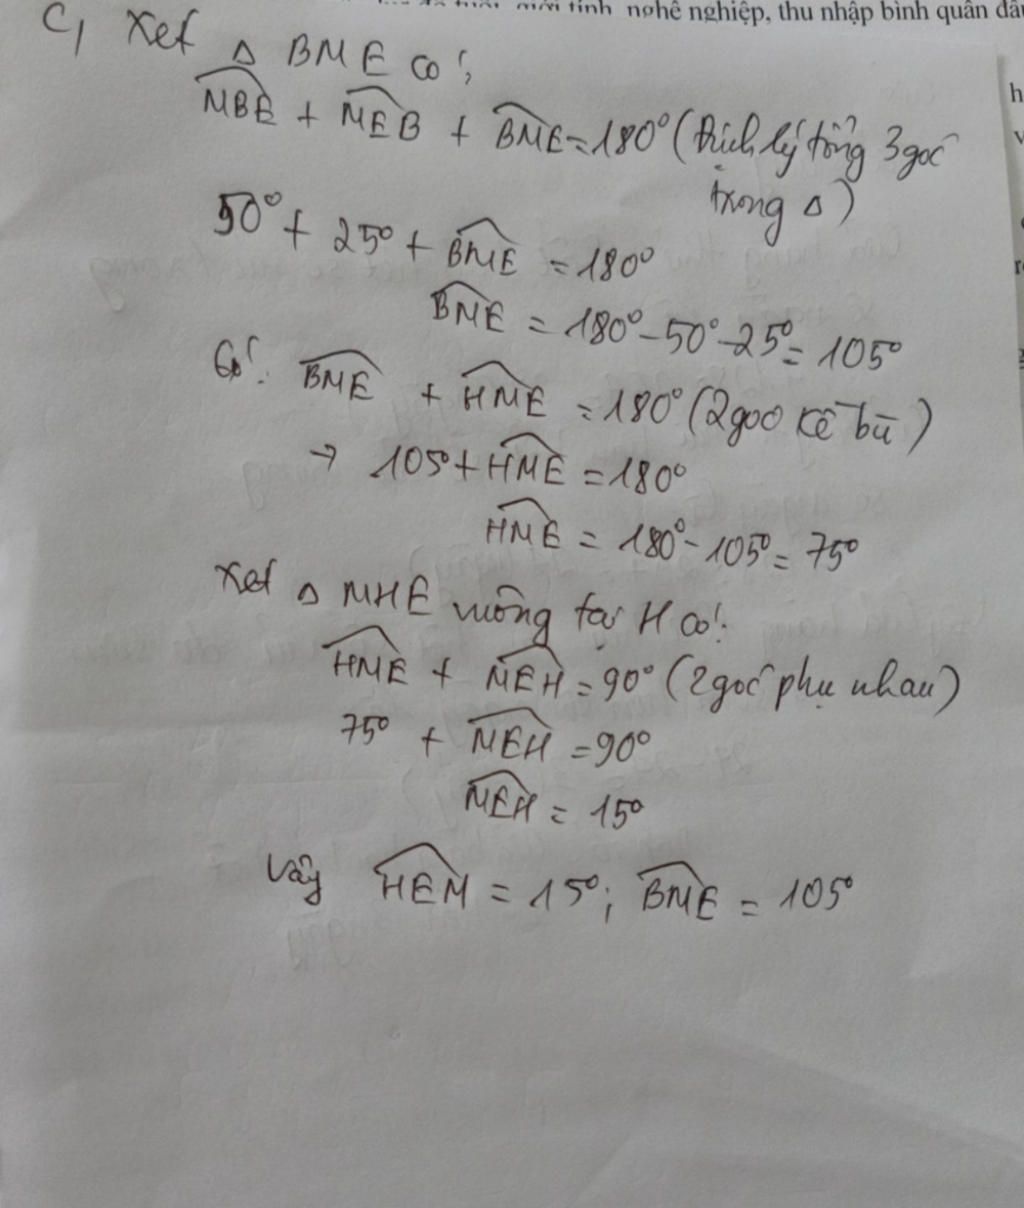 giới tính nghề nghiệp, thu nhập bình quân đầu
C, Xét △ BME có:
MBE + MEB + BME = 180° (Định lý tổng 3 góc
trong △)
50° + 25° + BME = 180°
BME = 180° - 50° - 25° = 105°
Có: BME + HME = 180° (2 góc kề bù)
→ 105° + HME = 180°
HME = 180° - 105° = 75°
Xét △ MHE vuông tại H có:
HME + MEH = 90° (2 góc phụ nhau)
75° + MEH = 90°
MEH = 15°
Vậy HEM = 15°; BME = 105°